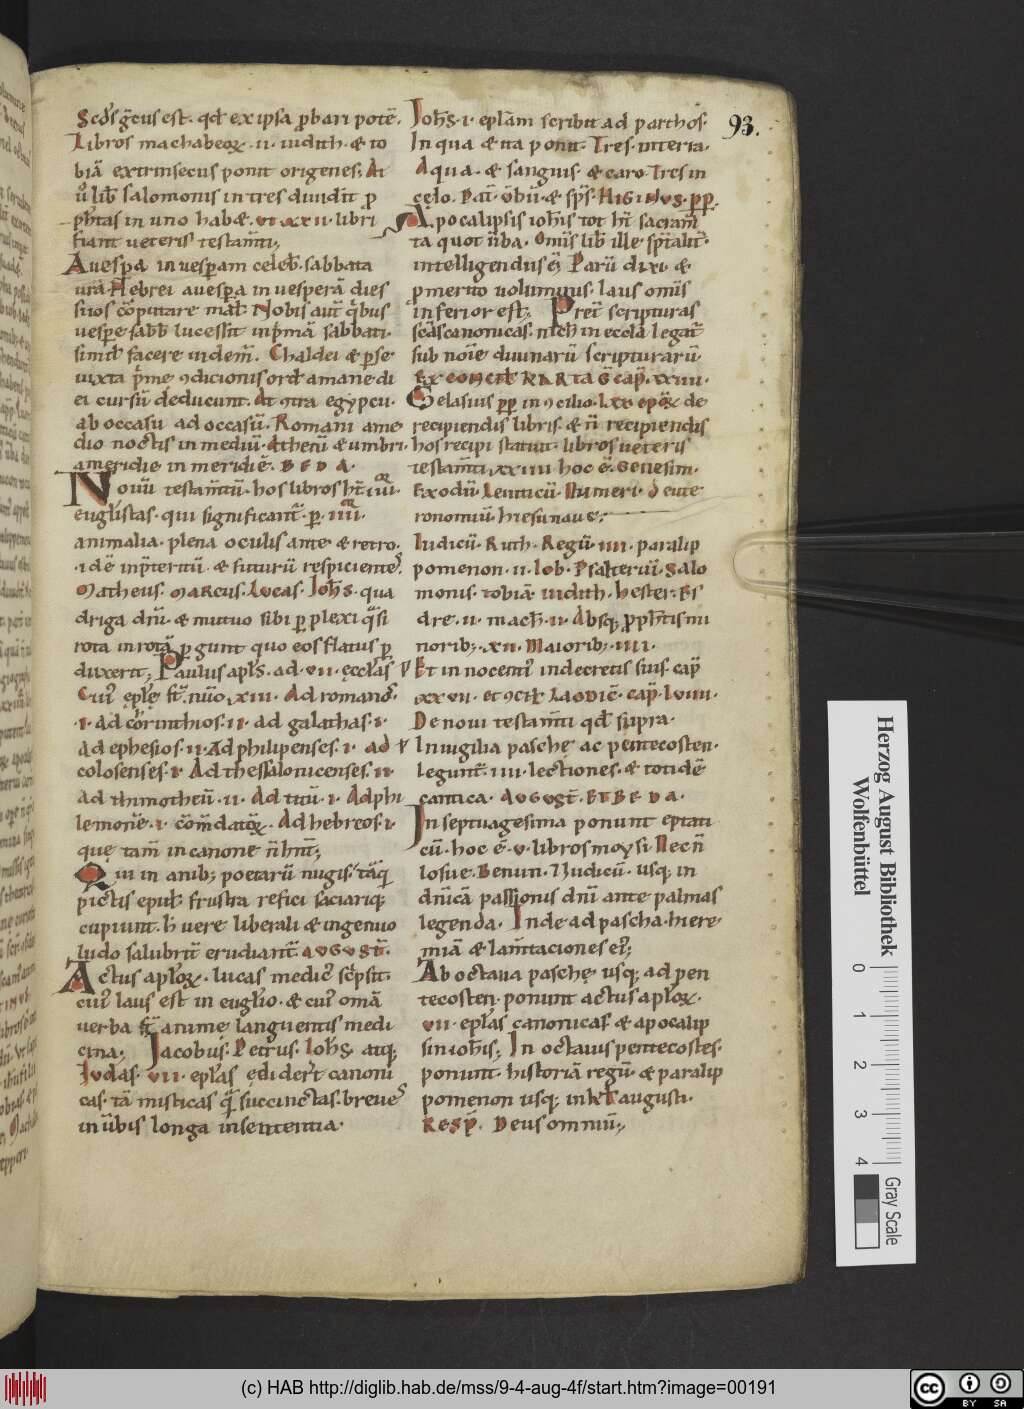 93.
Scd̄s ḡcus est. qd̄ ex ipsa p̄bari potē.
Libros machabeoꝝ .ii. iudith. & to
biā extrinsecus ponit origenes. At
ū lib̄ salomonis in tres diuidit p
ph̄tas in uno habē. vi. xxii. libri
fiant ueteris testam̄ti.
A uespa in uesperam celeb. sabbata
urā. Hebrei a uespa in uesperā dies
suos cōputare malt. Nobis aut̄ quibus
uespe sabb̄ lucessit in p̄mā sabbati.
similit facere uidem̄. Chaldei & pse
iuxta p̄me ꝯdicionis ord̄ a mane di
ei cursū deducunt. At ꝯtra egypcii.
ab occasu ad occasū. Romani a me
dio noctis in mediū. Atheni & umbri
a meridie in meridiē. BEDA.
Nouū testam̄tū. hos libros hn̄t. iiii.
eugl̄istas. qui significant̄ p. iiii.
animalia. plena oculis ante & retro.
.i. de in p̄teritū. & futurū respicientes.
Matheus. MARCUS. Lucas. Ioh̄s. qua
driga dn̄i. & mutuo sibi p plexi q̄si
rota in rota pergunt quo eos flatus p
duxerit; Paulus apl̄s. ad .vii. ęccl̄as
Cui᷒ epl̄ę st̄ nūo. xiiii. Ad romanos.
.i. ad corinthios. ii. ad galathas. i.
Ad ephesios. ii. Ad philipenses. i. ad
colosenses. i. Ad thessalonicenses. ii.
Ad thimotheū. ii. Ad titū. i. Ad phi
lemonē. i. cōmdatoꝝ. Ad hebreos. i.
quę tam̄ in canone n̄ hn̄t;
Qui in anib; poetarū nugis tāq
pictis epul᷒ frustra refici saciariq;
cupiunt. h̄ uere liberali & ingenuo
ludo salubrit̄ erudiant̄. AUGUST.
Actus apl̄oꝝ. lucas medic᷒ sc̄psit.
cui᷒ laus est in eugl̄io. & cui᷒ om̄a
uerba st̄ anime languentis medi
cina. Iacobus. Petrus. Ioh̄s. atq;
Iudas. vii. epl̄as ędider̄t canoni
cas. tā misticas q̄ succinctas. breues
in ūbis longa in sententia.
Ioh̄s. i. epl̄am scribit ad parthos.
In qua & ita ponit. Tres in terra.
Aqua. & sanguis. & caro. Tres in
cęlo. Pat̄. ūbū. & sp̄s. HIGINUS. pp.
Apocalipsis ioh̄is tot hn̄t sacram̄
ta quot ūba. Om̄is lib̄ ille sp̄italit̄.
intelligendus ē. Parū dixi. &
p merito uoluminis. laus om̄is
inferior est. Pret̄ scripturas
sc̄as canonicas. nich̄ in eccl̄a legat̄
sub noīe diuinarū scripturarū.
Ex CONCIL KARTAG cap. xxiiii.
Gelasius pp in ꝯcilio. lxx. epōꝝ de
recipiendis libris. & n̄ recipiendis
hos recipi statuit. libros ueteris
testam̄ti. xxiiii. hoc ē. Genesim.
Exodū. Leuiticū. Numeri. Deute
ronomiū. hiesu naue;
Iudicū. Ruth. Regū. iiii. paralip
pomenon. ii. Iob. Psalteriū. Salo
monis. tobiā. iudith. hester. Es
dre. ii. mach̄. ii. Absq; pph̄tis mi
norib;. xii. Maiorib;. iiii.
Et innocenti᷒ in decretis suis. cap̄
xxvii. et ꝯcil Laodic̄. cap̄. lviiii.
De noui testam̄ti qd̄ supra.
In uigilia paschę ac pentecosten.
legunt̄. iiii. lectiones. & totidē
cantica. AUGUST. ET BEDA.
In septuagesima ponunt eptati
cū. hoc ē. v. libros moysi. Necn̄
Iosue. Benun. & Iudicū. usq; in
dn̄icā passionis dn̄i ante palmas
legenda. Inde ad pascha. hiere
miā & lam̄taciones ei᷒;
Ab octaua paschę usq; ad pen
tecosten. ponunt actus apl̄oꝝ.
vii epl̄as canonicas. & apocalip
sin ioh̄is; In octauis pentecostes.
ponunt. historiā regū. & paralip
pomenon usq; in kl̄ augusti.
RESP̄. Deus omniū;
Herzog August Bibliothek
Wolfenbüttel
0 1 2 3 4
Gray Scale
(c) HAB http://diglib.hab.de/mss/9-4-aug-4f/start.htm?image=00191
cc BY SA